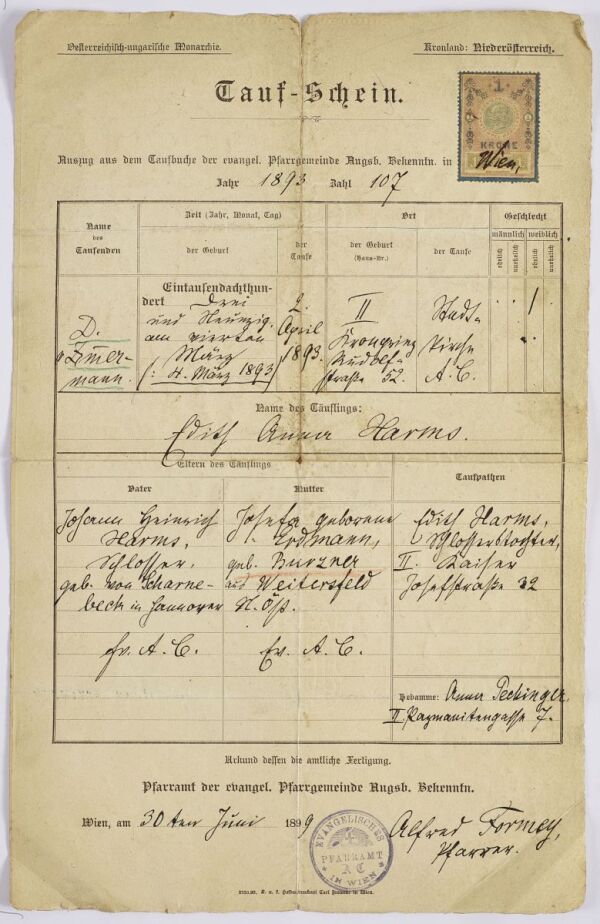 Oesterreichisch-ungarische Monarchie.
Kronland: Niederösterreich.
Tauf-Schein.
1
KRONE
Auszug aus dem Taufbuche der evangel. Pfarrgemeinde Augsb. Bekenntn. in Wien,
Jahr 1893 Zahl 107
Name des Taufenden
Zeit (Jahr, Monat, Tag)
Ort
Geschlecht
der Geburt
der Taufe
der Geburt (Haus-Nr.)
der Taufe
männlich
weiblich
ehelich
unehelich
ehelich
unehelich
D. Zimmermann.
Eintausendachthundert Drei
und Neunzig.
am vierten
März
(: 4. März 1893)
2. April 1893.
II
Kronprinz
Rudolf-
straße 52.
Stadt-
kirche
A. C.
Name des Täuflings:
Edith Anna Harms.
Eltern des Täuflings
Vater
Mutter
Taufpathen
Johann Heinrich
Harms,
Schlosser,
geb. von Scharne-
beck in Hannover
Ev. A. C.
Josefa geborene
Erdmann,
geb. Burzner
aus Weitersfeld
N. Öst.
Ev. A. C.
Edith Harms,
Schlosserstochter,
II. Kaiser
Josefstraße 32
Hebamme: Anna Pechinger
II. Pazmanitengasse 7.
Urkund dessen die amtliche Fertigung.
Pfarramt der evangel. Pfarrgemeinde Augsb. Bekenntn.
Wien, am 30ten Juni 1899
EVANGELISCHES
PFARRAMT
A C
IN WIEN
Alfred Formey,
Pfarrer.